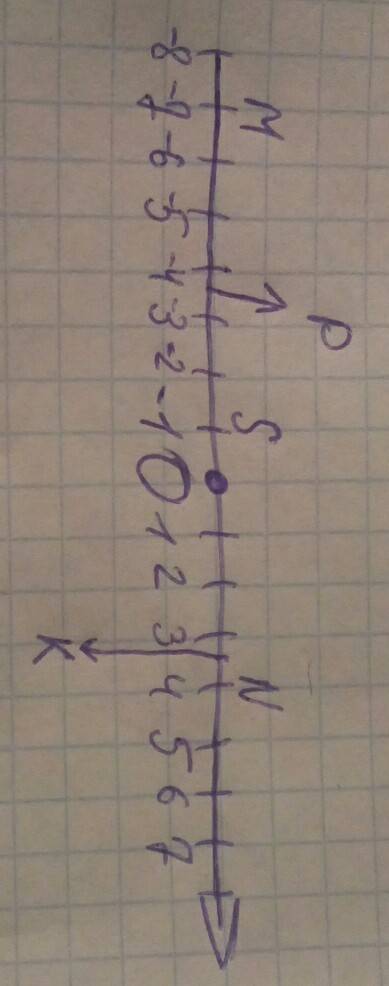 M P S N
-8 -7 -6 -5 -4 -3 -2 -1 0 1 2 3 4 5 6 7
K